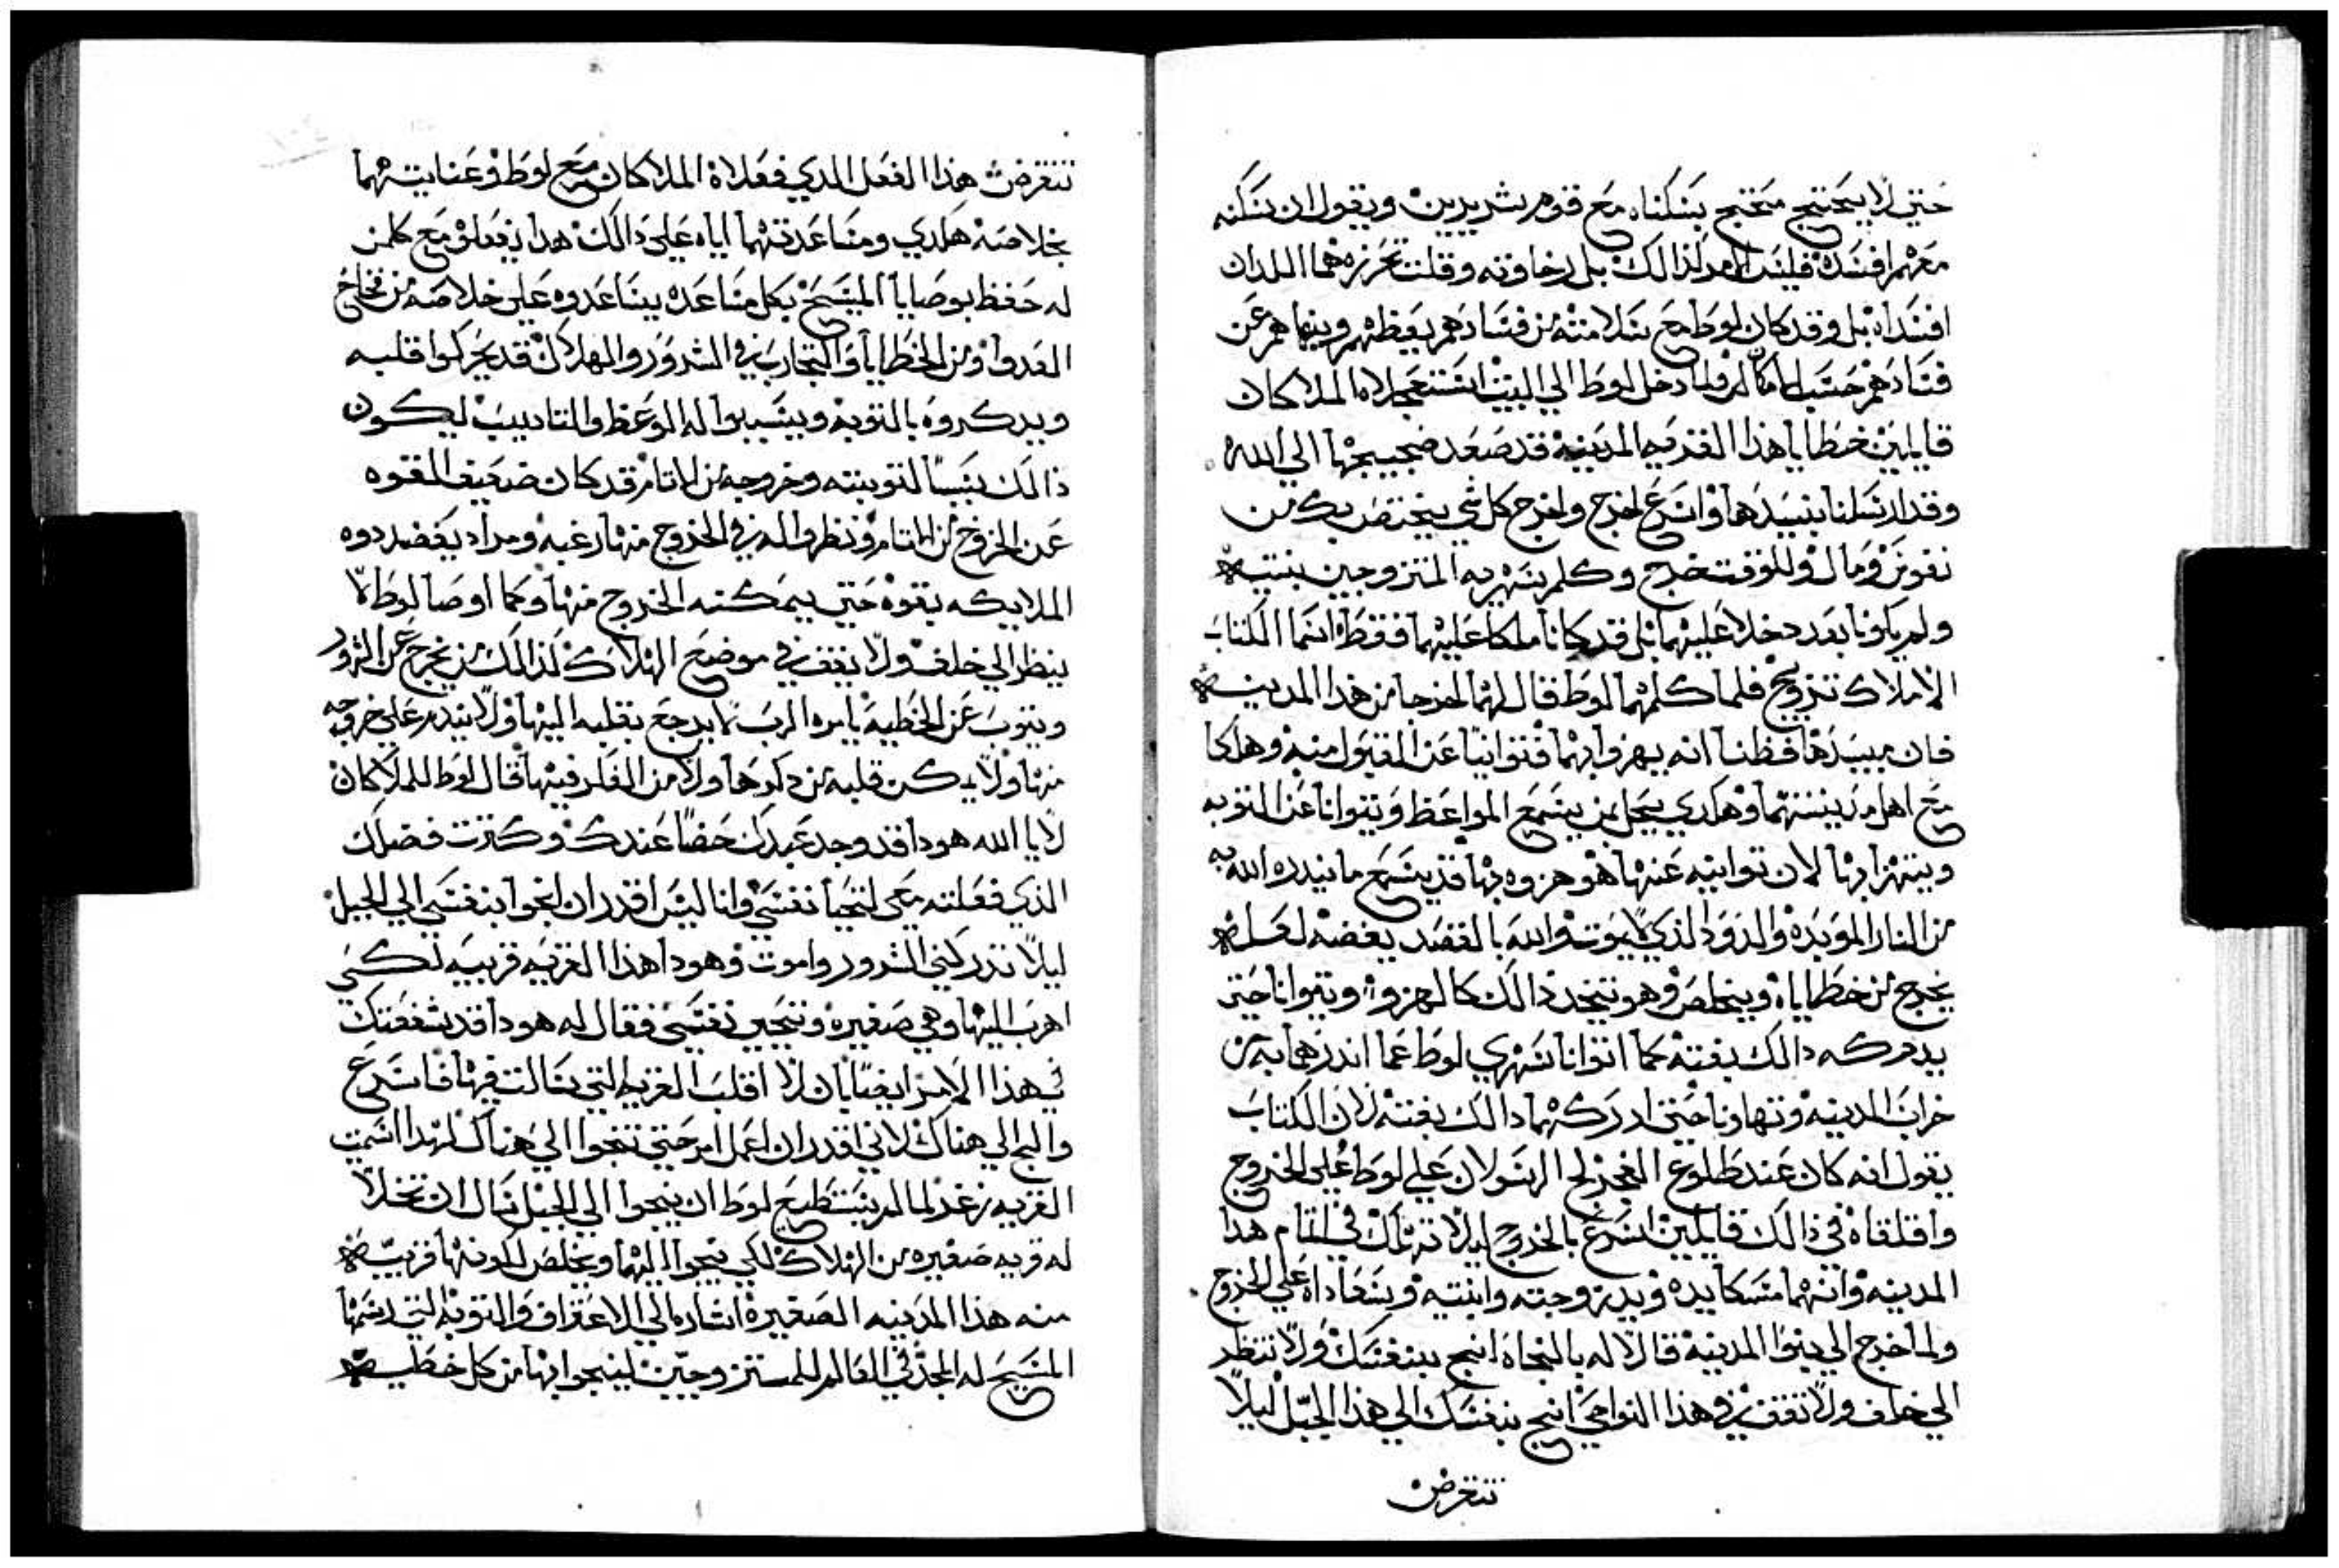 حتي لا يحتج محتج بسكناه مع قوم شريرين ويقول ان سكنه
معهم افسده فليس الامر لذالك بل رخاوته وقلت تحرزه هما اللدان
افسداه بل وقد كان لوط مع سلامته من فسادهم يعظهم وينهاهم عن
فسادهم حسب امكانه فلما دخل لوط الي البيت استعجلاه الملاكان
قايلين خطايا هذا القريه المدينه قد صعد ضجيجها الي الله
وقد ارسلنا بنسيدها واسرع اخرج واخرج كل شي يختص بك من
نفوس ومال وللوقت خرج وكلم سهريه المتزوجين بنتيه
ولم يكونا بعد دخلا عليهما بل قد كانا ملكا عليهما فقط انما الكتاب
الاملاك تزويج فلما كلمهما لوط قال لهما اخرجا من هذا المدينه
فان مبيدها فظنا انه يهزوا بهما فتوانيا عن القبول منه وهاكا
مع اهل مدينتهما وهكدي يحل بمن يسمع المواعظ ويتوانا عن التوبه
ويتهزا بها لان توانيه عنها هو هزوه بها قد يسمع ما نيدره الله به
من النار الموبده والدود الذي لا يموت والله بالقصد يغضه لعله
يخرج من خطاياه ويخلص وهو يتخد ذالك كالهزو ويتوانا حتي
يدركه دالك بغته كما اتوانا سهري لوط عما اندرهما به من
خراب المدينه وتهاونا حتي ادركهما دالك بغته لان الكتاب
يقول انه كان عند طلوع الفجر لج الرسولان علي لوط علي الخروج
واقلقاه في ذالك قايلين اسرع بالخروج ليلا تهلك في اتام هدا
المدينه وانهما مسكا يده ويد زوجته وابنتيه وساعاداه علي الخروج
ولما اخرج الي برا المدينه قالا له بالنجاه انج بنفسك ولا تنظر
الي خلف ولا تقف في هذا النواحي انج بنفسك الي هذا الجبل ليلا
تنقرض
تنقرض هذا الفعل الدي فعلاه الملاكان مع لوط وعنايتهما
بخلاصه هكدي ومساعدتهما اياه علي دالك هدا يفعلوه مع كلمن
له حفظ بوصايا المسيح بكل مساعده يساعدوه علي خلاصه من فخاخ
العدوا ومن الخطايا والتجارب في الشرور والهلاك قد يحركوا قلبه
ويدكروه بالتوبه ويسببوا له الوعظ والتاديب ليكون
ذالك سببا لتوبته وخروجه من الاتام قد كان ضعيف القوه
عن الخروج من الاتام ونظروا له في الخروج منها رغبه ومراد يعضدوه
الملايكه بقوه حتي يمكنه الخروج منها وكما اوصا لوط الا
ينظر الي خلف ولا يقف في موضع الهلاك كذالك من يخرج عن الشرور
ويتوب عن الخطيه يامره الرب لا يرجع بقلبه اليها ولا يندم علي خروجه
منها ولا يمكن قلبه من دكرها ولا من الفكر فيها قال لوط للملاكان
لا يا الله هودا قد وجد عبدك حضا عندك وكترت فضلك
الذي فعلته معي لتحيا نفسي وانا ليس اقدر ان انجوا بنفسي الي الجبل
ليلا تدركني الشرور واموت وهودا هذا القريه قريبه لكي
اهرب اليها وهي صغيره وتنجي نفسي فقال له هودا قد شفعتك
في هذا الامر ايضا بان لا اقلب القريه التي سالت فيها فاسرع
والج الي هناك لاني اقدر ان اعمل امر حتي تنجوا الي هناك لهدا اسميت
القريه زغر لما لم يستطيع لوط ان ينجوا الي الجبل سال ان تخلا
له قريه صغيره من الهلاك لكي ينجوا اليها ويخلص لكونها قريبه
منه هذا المدينه الصغيره اشاره الي الاعتراف والتوبه التي رسمها
المسيح له المجد في العالم للمتزوجين لينجوا بها من كل خطيه